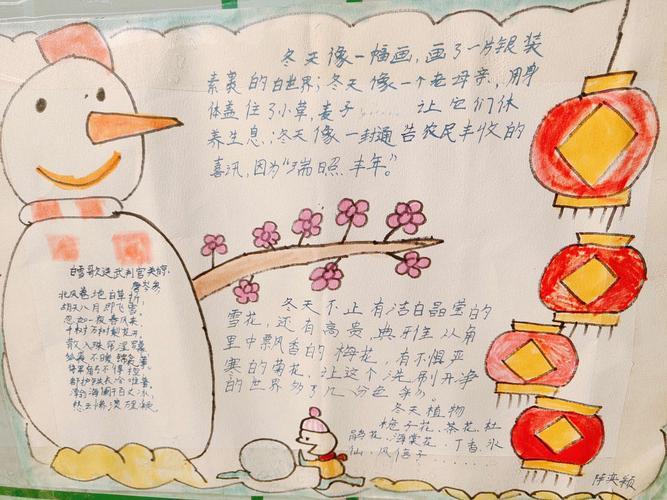 冬天像一幅画，画了一片银装
素裹的白世界；冬天像一个老母亲，用身
体盖住了小草，麦子……让它们休
养生息；冬天像一封通告农民丰收的
喜讯，因为“瑞照丰年。”
白雪歌送武判官归
岑参
北风卷地白草折，
胡天八月即飞雪。
忽如一夜春风来
千树万树梨花开
散入珠帘湿罗幕
狐裘不暖锦衾薄
将军角弓不得控
都护铁衣冷难着
瀚海阑干百丈冰，
愁云惨淡万里凝
冬天不止有洁白晶莹的
雪花，还有高贵，典雅从角
里中飘香的梅花，有不惧严
寒的菊花，让这个洗刷干净
的世界多了几分色彩。
冬天植物
栀子花、茶花、杜
鹃花、海棠花、丁香、水
仙、风信子……
颖